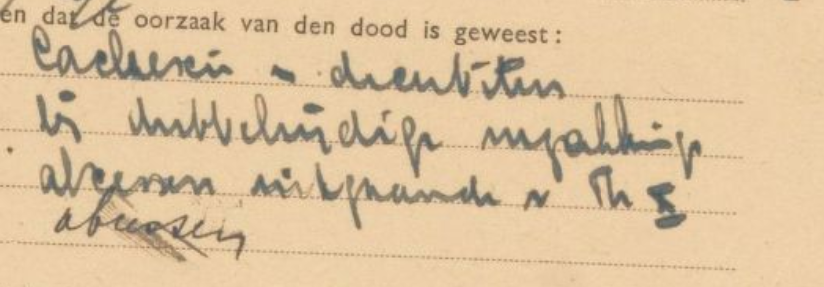 en dat de oorzaak van den dood is geweest:
Cachexie - decubitus
bij dubbelzijdige verzakkings
abcessen uitgaande v Th X
abcessen